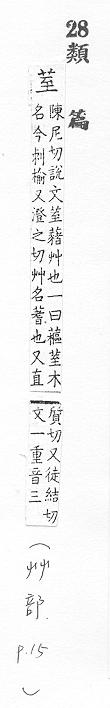 28
類
篇
荎
陳尼切說文荎藸艸也一曰蓲荎木
名今刺榆又澄之切艸名蓍也又直
質切又徒結切
文一重音三
（艸部.
p.15
）